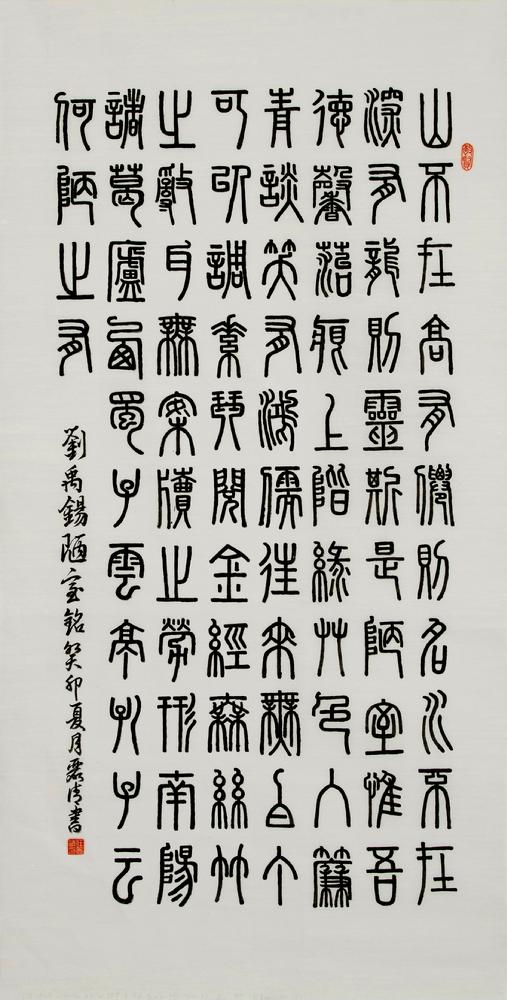 山不在高有僊則名水不在
深有龍則靈斯是陋室惟吾
德馨苔痕上階綠艸色入簾
青談笑有鴻儒往來無白丁
可以調素琴閱金經無絲竹
之亂耳無案牘之勞形南陽
諸葛廬西蜀子雲亭孔子云
何陋之有
劉禹錫陋室銘癸卯夏月清書